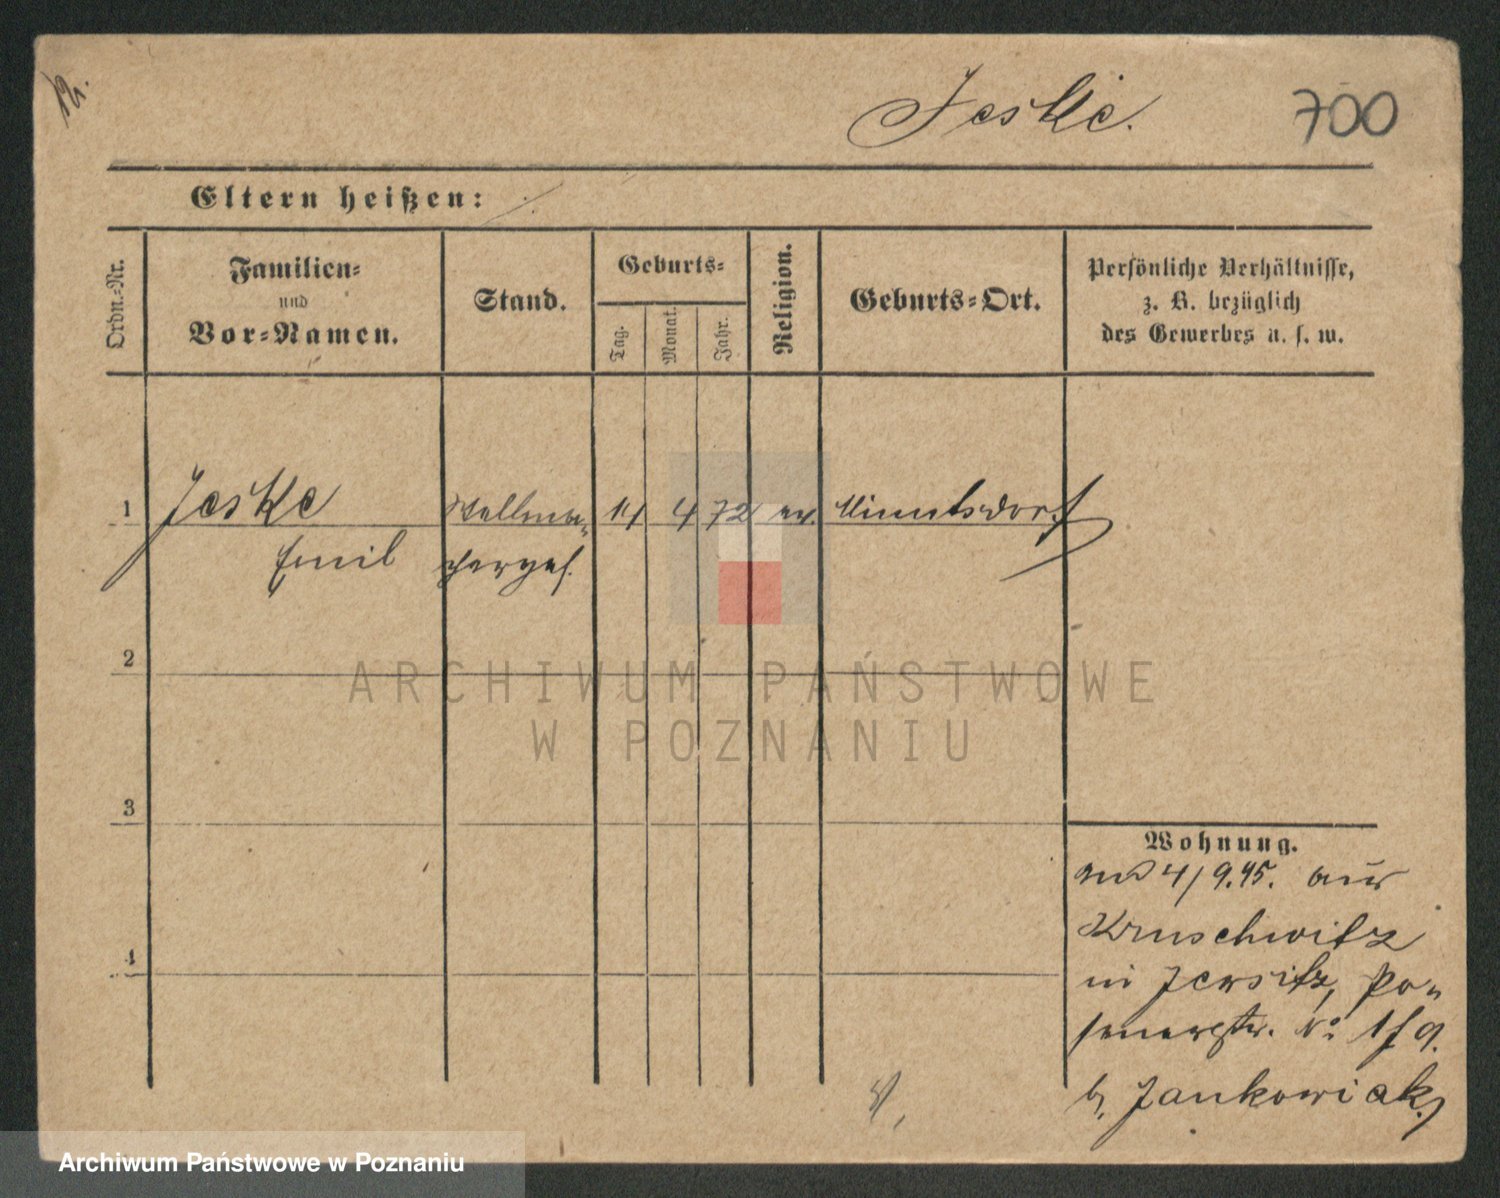 Jeske.
700
Eltern heißen:
Ordn.-Nr.
Familien-
und
Vor-Namen.
Stand.
Geburts-
Tag.
Monat.
Jahr.
Religion.
Geburts-Ort.
Persönliche Verhältnisse,
z. B. bezüglich
des Gewerbes u. s. w.
1
Jeske
14
4
72
ev.
Emil
2
ARCHIWUM PAŃSTWOWE
W POZNANIU
3
Wohnung.
4/9.95. aus
Kruschwitz
in Jersitz, Po-
4
senerstr. No
b. Jankowiak.
Archiwum Państwowe w Poznaniu